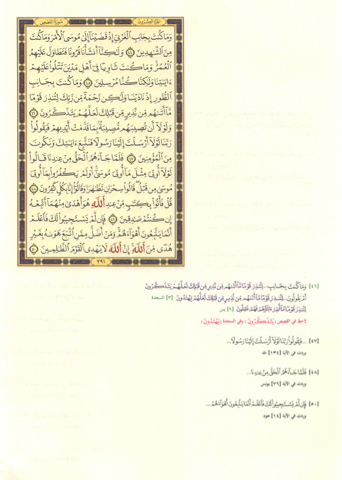 الجزء العشرون سورة القصص
وَمَا كُنتَ بِجَانِبِ ٱلْغَرْبِيِّ إِذْ قَضَيْنَآ إِلَىٰ مُوسَى ٱلْأَمْرَ وَمَا كُنتَ
مِنَ ٱلشَّٰهِدِينَ ٤٤ وَلَٰكِنَّآ أَنشَأْنَا قُرُونًا فَتَطَاوَلَ عَلَيْهِمُ
ٱلْعُمُرُ وَمَا كُنتَ ثَاوِيًا فِيٓ أَهْلِ مَدْيَنَ تَتْلُوا۟ عَلَيْهِمْ
ءَايَٰتِنَا وَلَٰكِنَّا كُنَّا مُرْسِلِينَ ٤٥ وَمَا كُنتَ بِجَانِبِ
ٱلطُّورِ إِذْ نَادَيْنَا وَلَٰكِن رَّحْمَةً مِّن رَّبِّكَ لِتُنذِرَ قَوْمًا
مَّآ أَتَىٰهُم مِّن نَّذِيرٍ مِّن قَبْلِكَ لَعَلَّهُمْ يَتَذَكَّرُونَ ٤٦
وَلَوْلَآ أَن تُصِيبَهُم مُّصِيبَةٌۢ بِمَا قَدَّمَتْ أَيْدِيهِمْ فَيَقُولُوا۟
رَبَّنَا لَوْلَآ أَرْسَلْتَ إِلَيْنَا رَسُولًا فَنَتَّبِعَ ءَايَٰتِكَ وَنَكُونَ
مِنَ ٱلْمُؤْمِنِينَ ٤٧ فَلَمَّا جَآءَهُمُ ٱلْحَقُّ مِنْ عِندِنَا قَالُوا۟
لَوْلَآ أُوتِيَ مِثْلَ مَآ أُوتِيَ مُوسَىٰٓ أَوَلَمْ يَكْفُرُوا۟ بِمَآ أُوتِيَ
مُوسَىٰ مِن قَبْلُ قَالُوا۟ سِحْرَانِ تَظَٰهَرَا وَقَالُوٓا۟ إِنَّا بِكُلٍّ كَٰفِرُونَ ٤٨
قُلْ فَأْتُوا۟ بِكِتَٰبٍ مِّنْ عِندِ ٱللَّهِ هُوَ أَهْدَىٰ مِنْهُمَآ أَتَّبِعْهُ
إِن كُنتُمْ صَٰدِقِينَ ٤٩ فَإِن لَّمْ يَسْتَجِيبُوا۟ لَكَ فَٱعْلَمْ
أَنَّمَا يَتَّبِعُونَ أَهْوَآءَهُمْ وَمَنْ أَضَلُّ مِمَّنِ ٱتَّبَعَ هَوَىٰهُ بِغَيْرِ
هُدًى مِّنَ ٱللَّهِ إِنَّ ٱللَّهَ لَا يَهْدِي ٱلْقَوْمَ ٱلظَّٰلِمِينَ ٥٠
٣٩١
[٤٦] وَمَا كُنتَ بِجَانِبِ... لِتُنذِرَ قَوْمًا مَّآ أَتَىٰهُم مِّن نَّذِيرٍ مِّن قَبْلِكَ لَعَلَّهُمْ يَتَذَكَّرُونَ
أَمْ يَقُولُونَ... لِتُنذِرَ قَوْمًا مَّآ أَتَىٰهُم مِّن نَّذِيرٍ مِّن قَبْلِكَ لَعَلَّهُمْ يَهْتَدُونَ [٣] السجدة
لِتُنذِرَ قَوْمًا مَّآ أُنذِرَ ءَابَآؤُهُمْ فَهُمْ غَٰفِلُونَ [٦] يس
لاحظ في القصص (يَتَذَكَّرُونَ) وفي السجدة (يَهْتَدُونَ)
[٤٧] ...فَيَقُولُوا۟ رَبَّنَا لَوْلَآ أَرْسَلْتَ إِلَيْنَا رَسُولًا...
وردت في الآية [١٣٤] طه
[٤٨] فَلَمَّا جَآءَهُمُ ٱلْحَقُّ مِنْ عِندِنَا...
وردت في الآية [٧٦] يونس
[٥٠] فَإِن لَّمْ يَسْتَجِيبُوا۟ لَكَ فَٱعْلَمْ أَنَّمَا يَتَّبِعُونَ أَهْوَآءَهُمْ...
وردت في الآية [١٤] هود